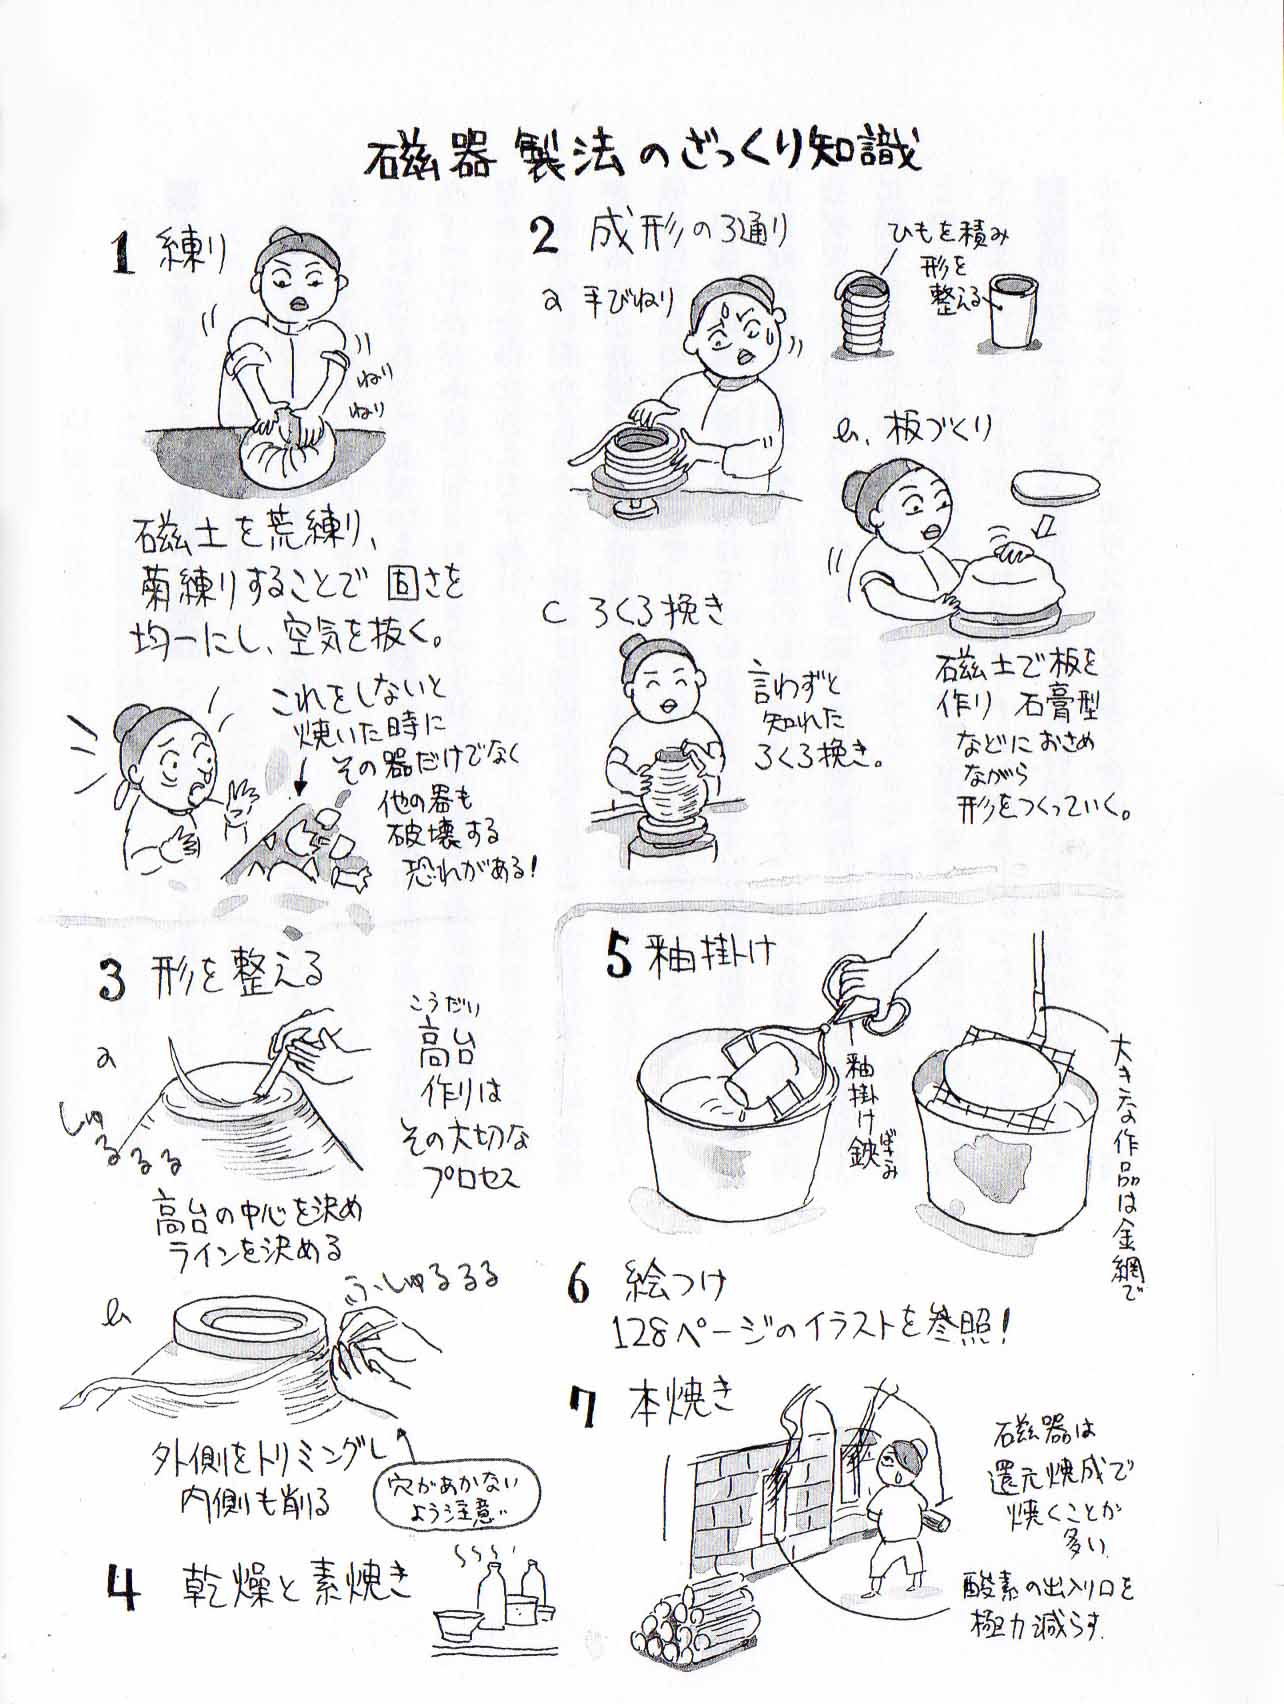 磁器製法のざっくり知識
1 練り
ねり
ねり
磁土を荒練り、
菊練りすることで固さを
均一にし、空気を抜く。
これをしないと
焼いた時に
その器だけでなく
他の器も
破壊する
恐れがある!
2 成形の3通り
a 手びねり
ひもを積み
形を
整える
b、板づくり
磁土で板を
作り 石膏型
などにおさめ
ながら
形をつくっていく。
c ろくろ挽き
言わずと
知れた
ろくろ挽き。
3 形を整える
a
しゅるるる
こうだい
高台
作りは
その大切な
プロセス
高台の中心を決め
ラインを決める
b
ふしゅるるる
外側をトリミングし
内側も削る
穴があかない
よう注意
4 乾燥と素焼き
5 釉掛け
釉掛け鋏
ばさみ
大きな作品は金網で
6 絵つけ
128ページのイラストを参照!
7 本焼き
磁器は
還元焼成で
焼くことが
多い
酸素の出入り口を
極力減らす.